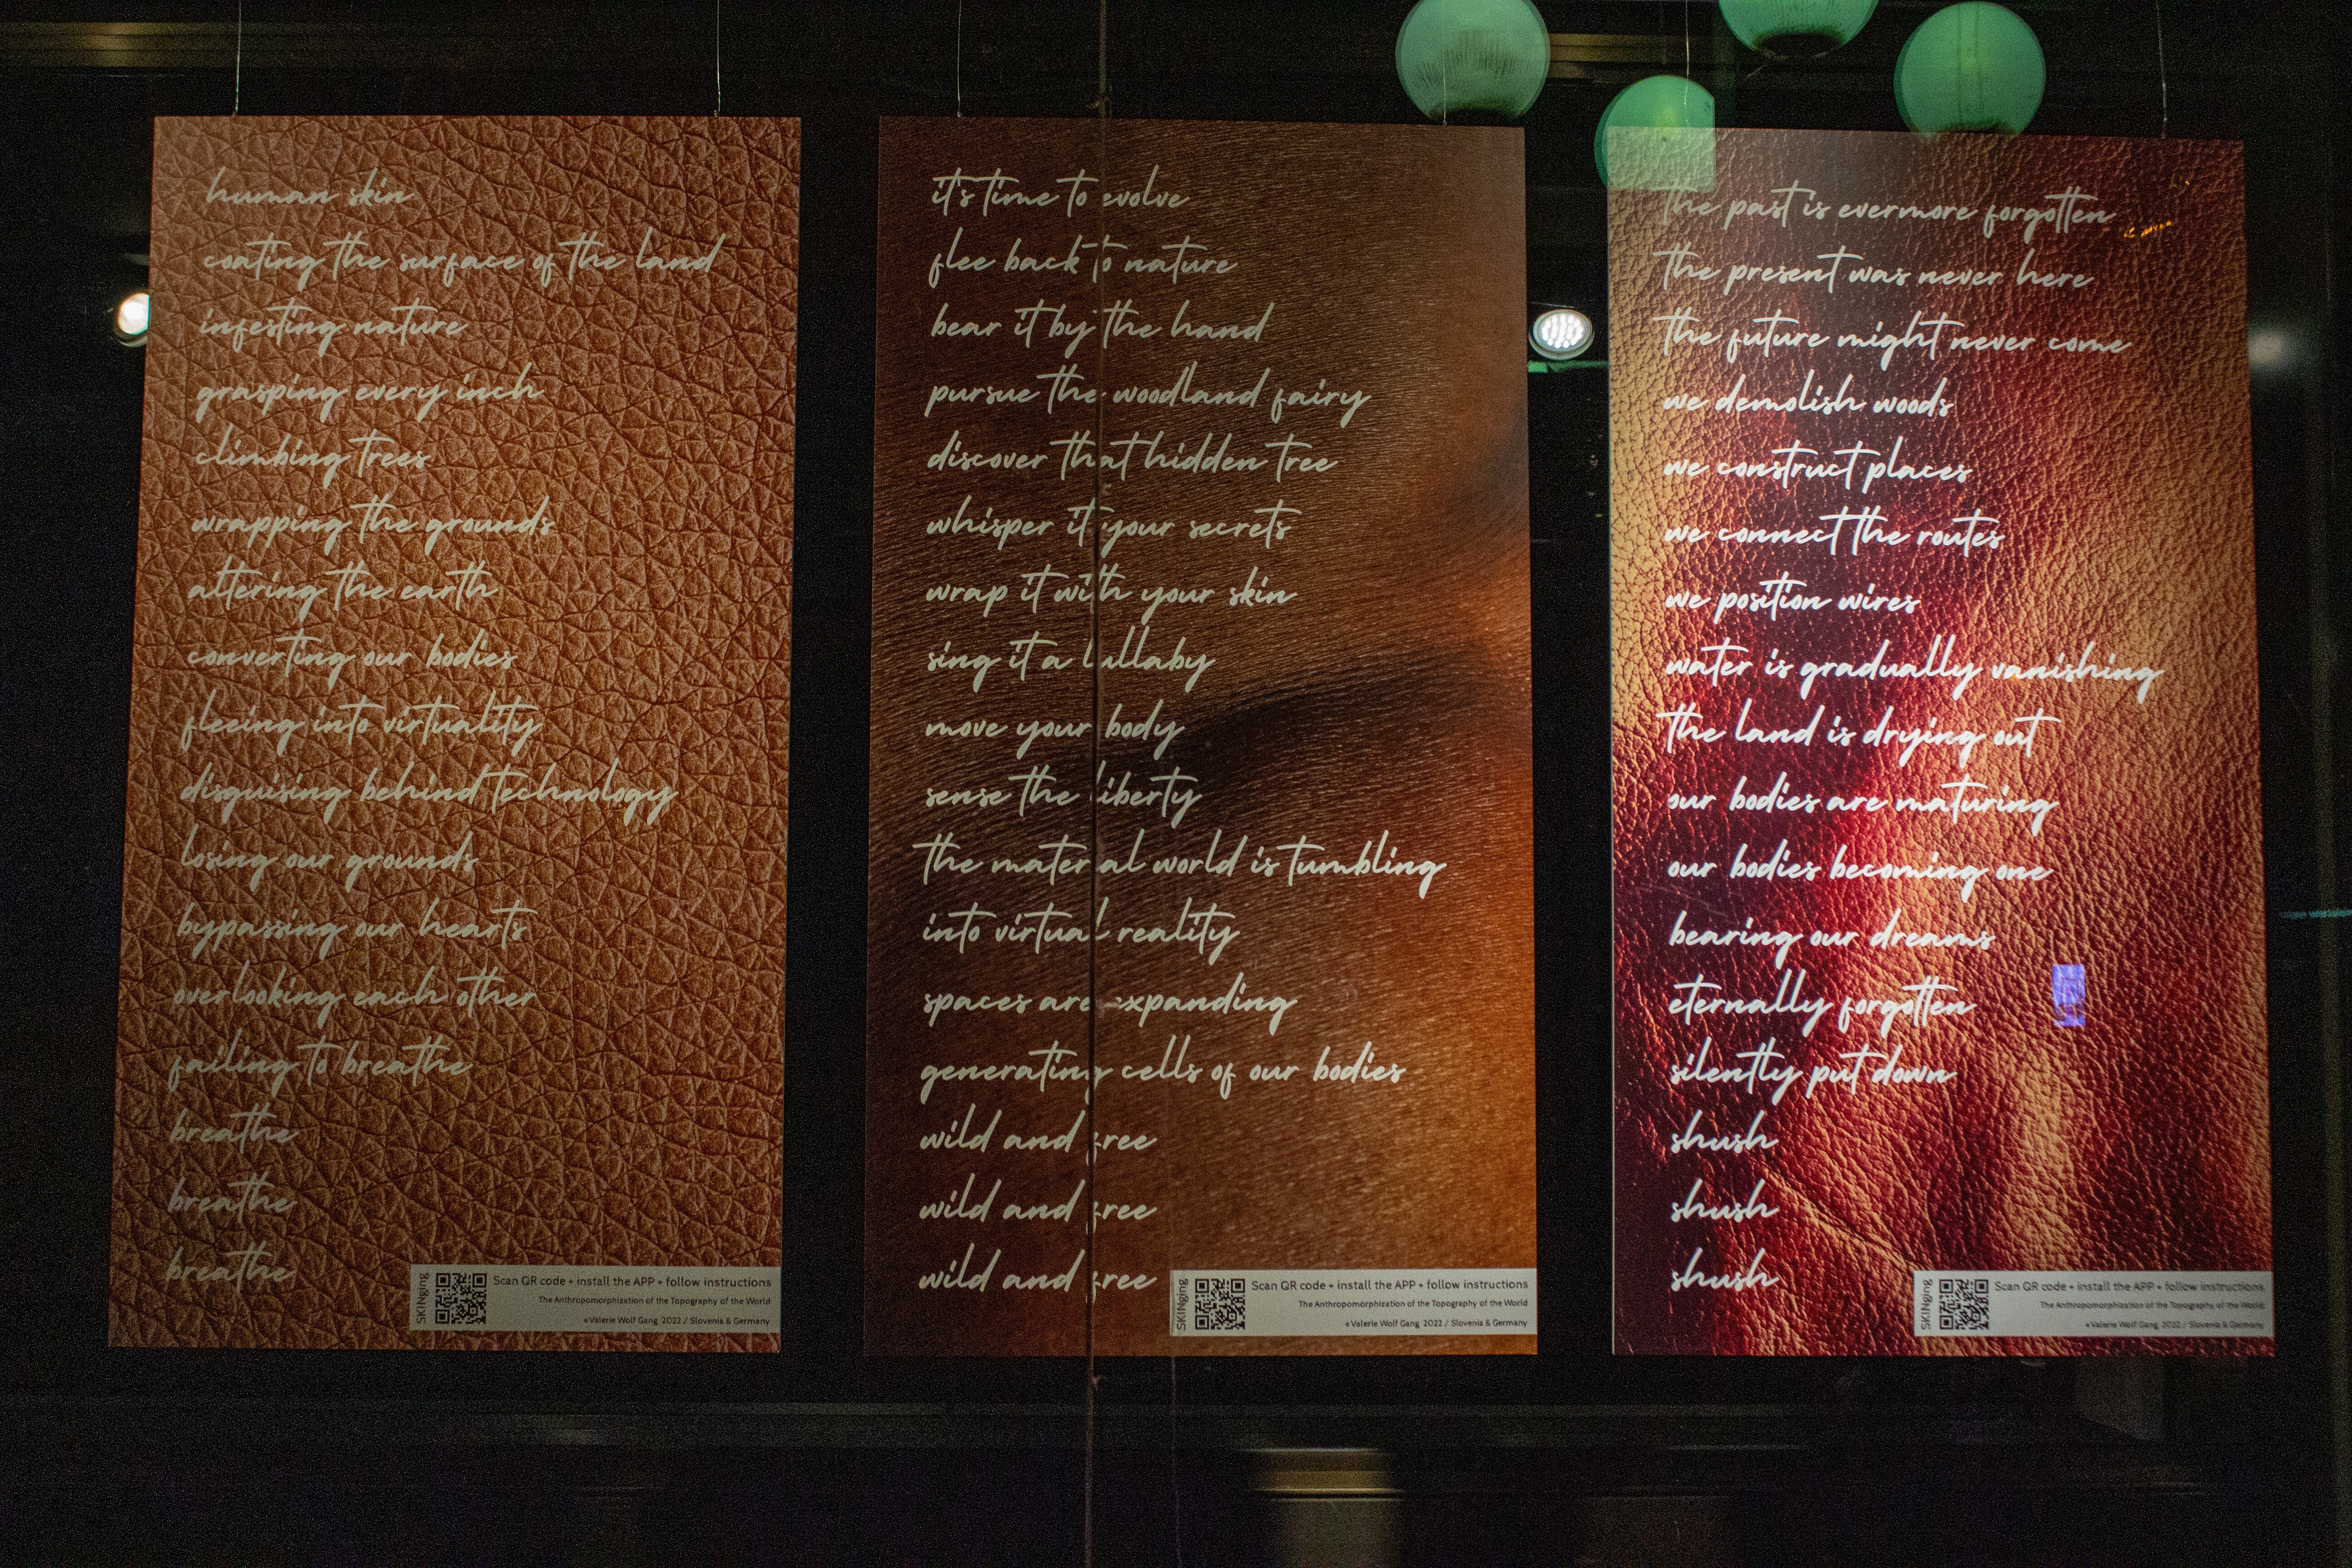 human skin
coating the surface of the land
infesting nature
grasping every inch
climbing trees
wrapping the grounds
altering the earth
converting our bodies
fleeing into virtuality
disguising behind technology
losing our grounds
bypassing our hearts
overlooking each other
failing to breathe
breathe
breathe
breathe
SKINging
Scan QR code + install the APP + follow instructions
The Anthropomorphization of the Topography of the World
©Valerie Wolf Gang 2022 / Slovenia & Germany
it's time to evolve
flee back to nature
bear it by the hand
pursue the woodland fairy
discover that hidden tree
whisper it your secrets
wrap it with your skin
sing it a lullaby
move your body
sense the liberty
the material world is tumbling
into virtual reality
spaces are expanding
generating cells of our bodies
wild and free
wild and free
wild and free
SKINging
Scan QR code + install the APP + follow instructions
The Anthropomorphization of the Topography of the World
©Valerie Wolf Gang 2022 / Slovenia & Germany
the past is evermore forgotten
the present was never here
the future might never come
we demolish woods
we construct places
we connect the routes
we position wires
water is gradually vanishing
the land is drying out
our bodies are maturing
our bodies becoming one
bearing our dreams
eternally forgotten
silently put down
shush
shush
shush
SKINging
Scan QR code + install the APP + follow instructions
The Anthropomorphization of the Topography of the World
©Valerie Wolf Gang 2022 / Slovenia & Germany